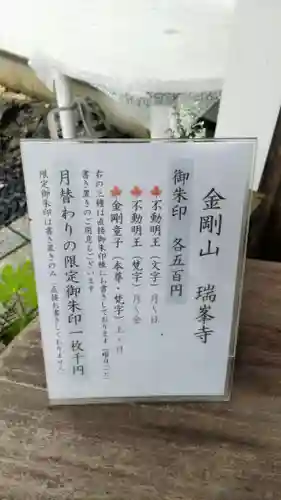 金剛山 瑞峯寺
御朱印 各五百円
不動明王（文字）月〜日
不動明王（梵字）月〜金
金剛童子（本尊・梵字）土・日
右の三種は直接御朱印帳にお書きしております
書き置きのご用意もございます
月替わりの限定御朱印一枚千円
限定御朱印は書き置きのみ（直接お書きしておりません）